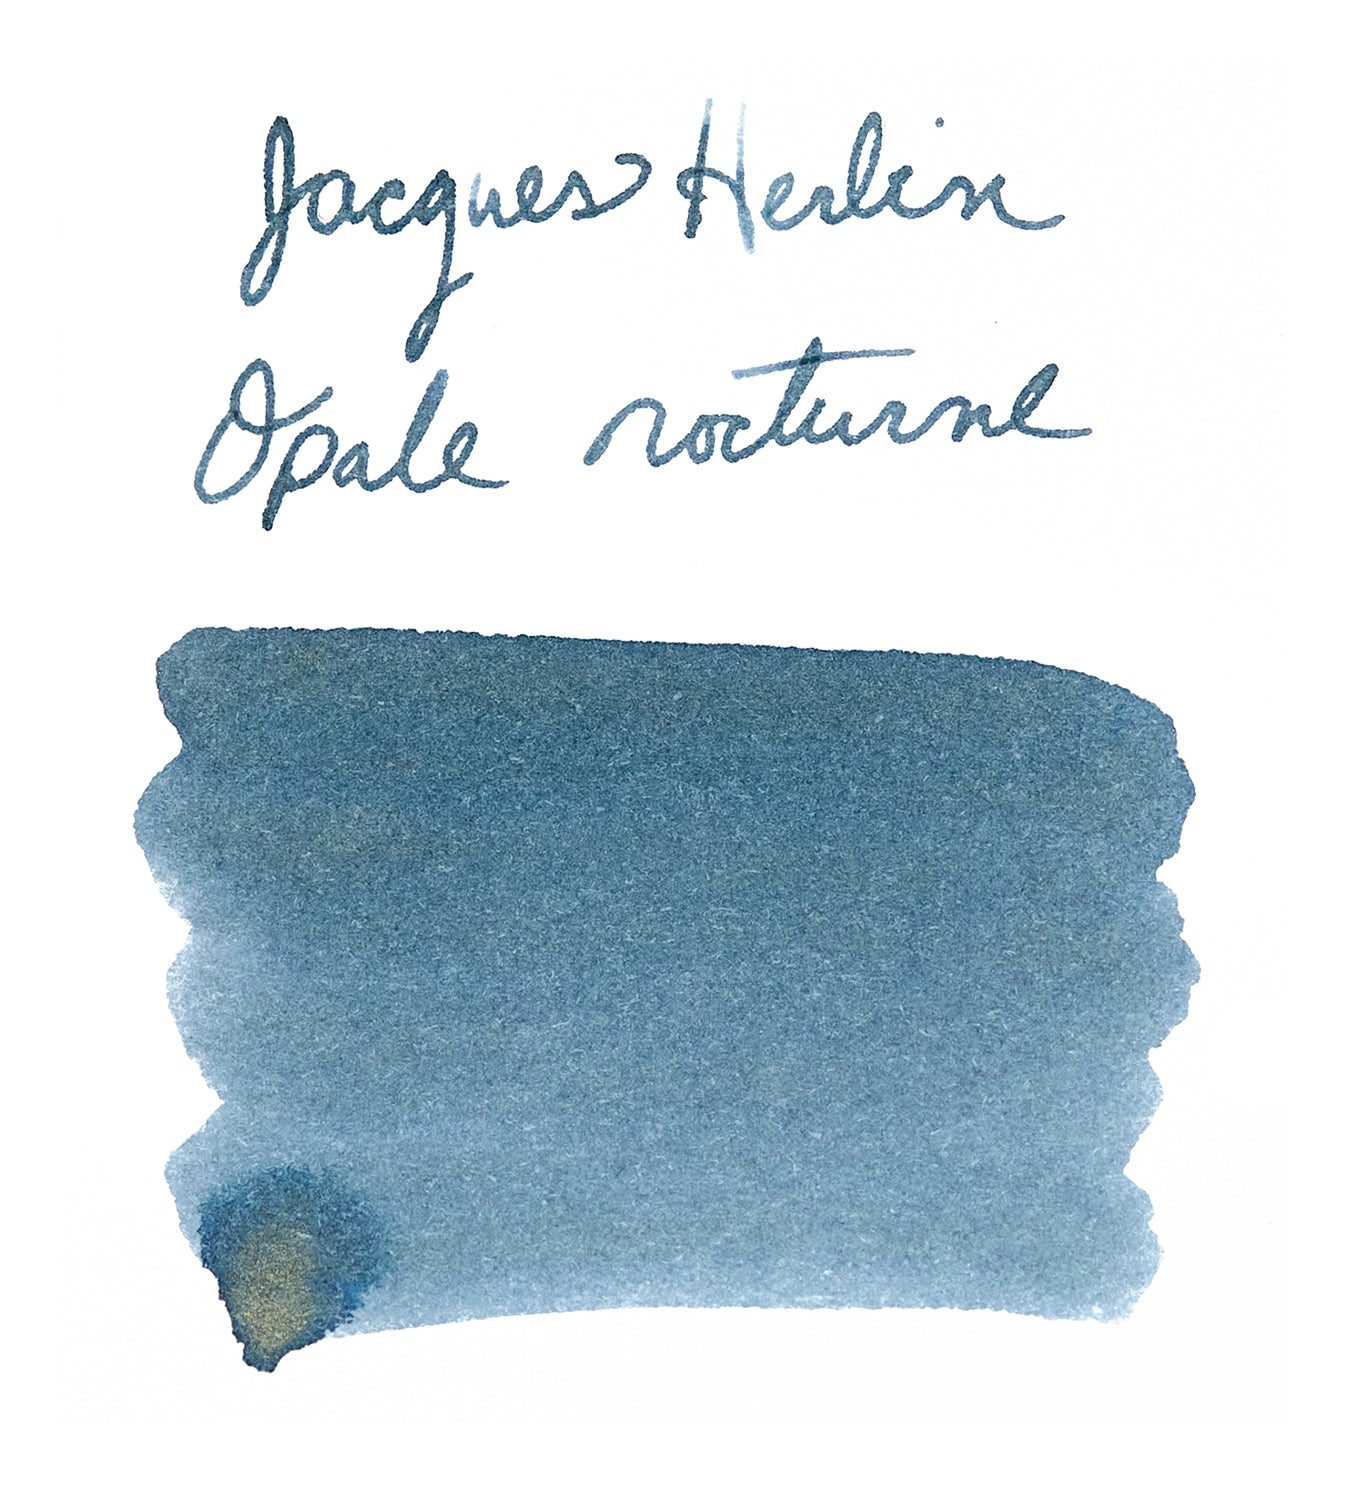 Jacques Herlin
Opale nocturne